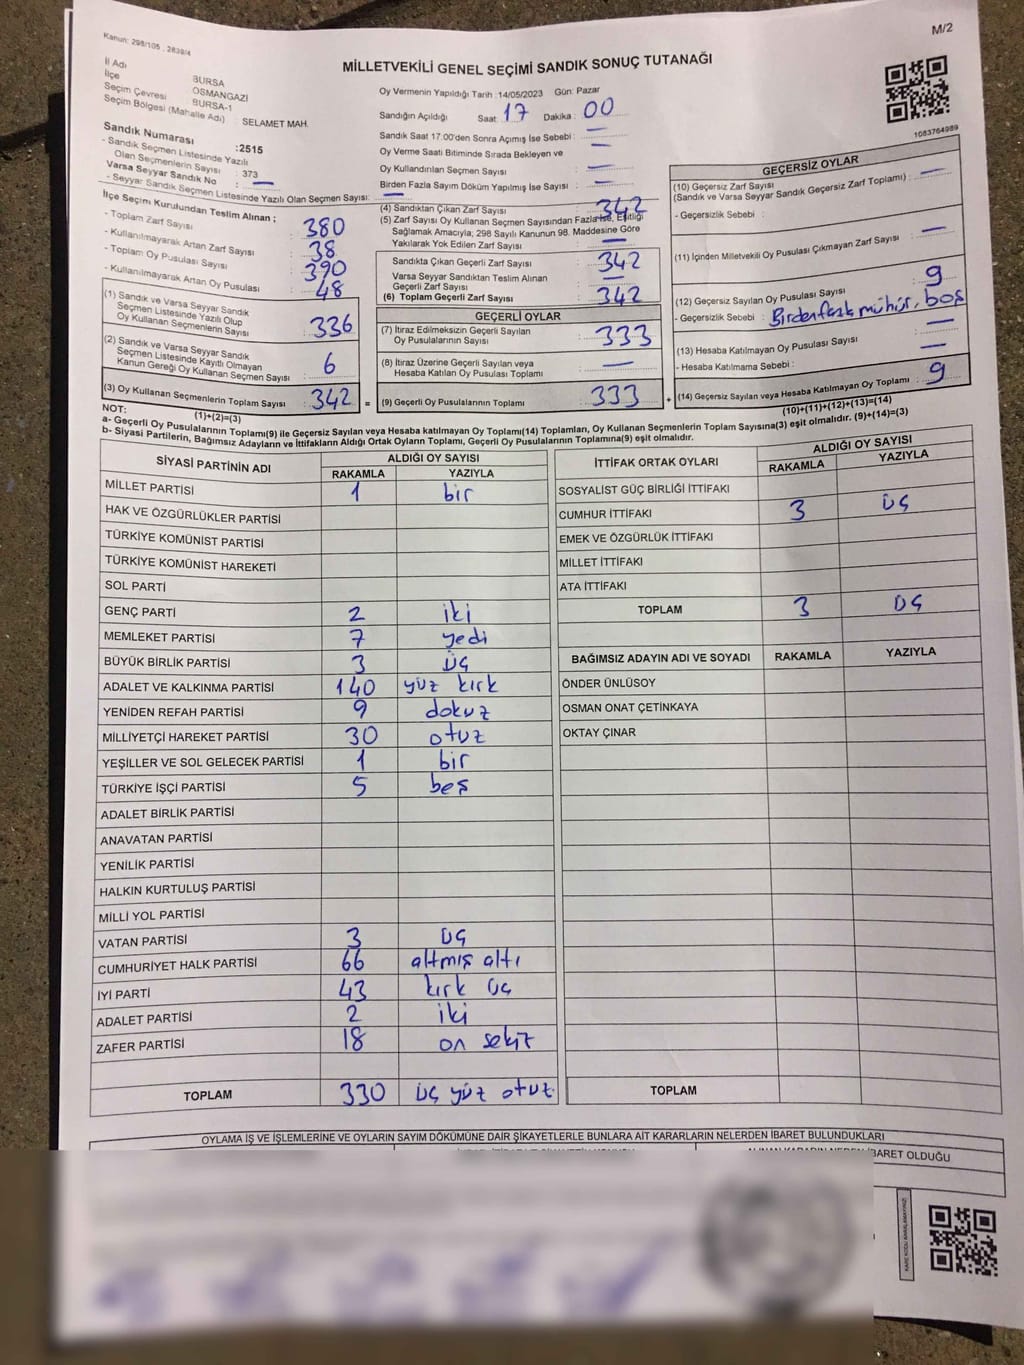 Kanun: 298/105 , 2839/4
M/2
MİLLETVEKİLİ GENEL SEÇİMİ SANDIK SONUÇ TUTANAĞI
İl Adı BURSA
İlçe OSMANGAZİ
Seçim Çevresi BURSA-1
Seçim Bölgesi (Mahalle Adı) SELAMET MAH.
Sandık Numarası :2515
- Sandık Seçmen Listesinde Yazılı
Olan Seçmenlerin Sayısı : 373
Varsa Seyyar Sandık No : —
- Seyyar Sandık Seçmen Listesinde Yazılı Olan Seçmen Sayısı: —
Oy Vermenin Yapıldığı Tarih :14/05/2023 Gün: Pazar
Sandığın Açıldığı Saat : 17 Dakika : 00
Sandık Saat 17.00'den Sonra Açımış İse Sebebi : —
Oy Verme Saati Bitiminde Sırada Bekleyen ve
Oy Kullandırılan Seçmen Sayısı : —
Birden Fazla Sayım Döküm Yapılmış İse Sayısı : —
1083764989
İlçe Seçim Kurulundan Teslim Alınan ;
- Toplam Zarf Sayısı : 380
- Kullanılmayarak Artan Zarf Sayısı : 38
- Toplam Oy Pusulası Sayısı : 390
- Kullanılmayarak Artan Oy Pusulası : 48
(1) Sandık ve Varsa Seyyar Sandık
Seçmen Listesinde Yazılı Olup
Oy Kullanan Seçmenlerin Sayısı : 336
(2) Sandık ve Varsa Seyyar Sandık
Seçmen Listesinde Kayıtlı Olmayan
Kanun Gereği Oy Kullanan Seçmen Sayısı : 6
(3) Oy Kullanan Seçmenlerin Toplam Sayısı : 342 =
(1)+(2)=(3)
(4) Sandıktan Çıkan Zarf Sayısı : 342
(5) Zarf Sayısı Oy Kullanan Seçmen Sayısından Fazla İse, Eşitliği
Sağlamak Amacıyla; 298 Sayılı Kanunun 98. Maddesine Göre
Yakılarak Yok Edilen Zarf Sayısı : —
Sandıkta Çıkan Geçerli Zarf Sayısı : 342
Varsa Seyyar Sandıktan Teslim Alınan
Geçerli Zarf Sayısı : —
(6) Toplam Geçerli Zarf Sayısı : 342
GEÇERLİ OYLAR
(7) İtiraz Edilmeksizin Geçerli Sayılan
Oy Pusulalarının Sayısı : 333
(8) İtiraz Üzerine Geçerli Sayılan veya
Hesaba Katılan Oy Pusulası Toplamı : —
(9) Geçerli Oy Pusulalarının Toplamı : 333 +
GEÇERSİZ OYLAR
(10) Geçersiz Zarf Sayısı : —
(Sandık ve Varsa Seyyar Sandık Geçersiz Zarf Toplamı)
- Geçersizlik Sebebi :
(11) İçinden Milletvekili Oy Pusulası Çıkmayan Zarf Sayısı : —
(12) Geçersiz Sayılan Oy Pusulası Sayısı : 9
- Geçersizlik Sebebi : Birden fazla mühür, boş
(13) Hesaba Katılmayan Oy Pusulası Sayısı : —
- Hesaba Katılmama Sebebi : —
(14) Geçersiz Sayılan veya Hesaba Katılmayan Oy Toplamı : 9
(10)+(11)+(12)+(13)=(14)
NOT:
a- Geçerli Oy Pusulalarının Toplamı(9) ile Geçersiz Sayılan veya Hesaba katılmayan Oy Toplamı(14) Toplamları, Oy Kullanan Seçmenlerin Toplam Sayısına(3) eşit olmalıdır. (9)+(14)=(3)
b- Siyasi Partilerin, Bağımsız Adayların ve İttifakların Aldığı Ortak Oyların Toplamı, Geçerli Oy Pusulalarının Toplamına(9) eşit olmalıdır.
SİYASİ PARTİNİN ADI ALDIĞI OY SAYISI
RAKAMLA YAZIYLA
MİLLET PARTİSİ 1 bir
HAK VE ÖZGÜRLÜKLER PARTİSİ
TÜRKİYE KOMÜNİST PARTİSİ
TÜRKİYE KOMÜNİST HAREKETİ
SOL PARTİ
GENÇ PARTİ 2 iki
MEMLEKET PARTİSİ 7 yedi
BÜYÜK BİRLİK PARTİSİ 3 üç
ADALET VE KALKINMA PARTİSİ 140 yüz kırk
YENİDEN REFAH PARTİSİ 9 dokuz
MİLLİYETÇİ HAREKET PARTİSİ 30 otuz
YEŞİLLER VE SOL GELECEK PARTİSİ 1 bir
TÜRKİYE İŞÇİ PARTİSİ 5 beş
ADALET BİRLİK PARTİSİ
ANAVATAN PARTİSİ
YENİLİK PARTİSİ
HALKIN KURTULUŞ PARTİSİ
MİLLİ YOL PARTİSİ
VATAN PARTİSİ 3 üç
CUMHURİYET HALK PARTİSİ 66 altmış altı
İYİ PARTİ 43 kırk üç
ADALET PARTİSİ 2 iki
ZAFER PARTİSİ 18 on sekiz
TOPLAM 330 üç yüz otuz
İTTİFAK ORTAK OYLARI ALDIĞI OY SAYISI
RAKAMLA YAZIYLA
SOSYALİST GÜÇ BİRLİĞİ İTTİFAKI
CUMHUR İTTİFAKI 3 üç
EMEK VE ÖZGÜRLÜK İTTİFAKI
MİLLET İTTİFAKI
ATA İTTİFAKI
TOPLAM 3 üç
BAĞIMSIZ ADAYIN ADI VE SOYADI RAKAMLA YAZIYLA
ÖNDER ÜNLÜSOY
OSMAN ONAT ÇETİNKAYA
OKTAY ÇINAR
TOPLAM
OYLAMA İŞ VE İŞLEMLERİNE VE OYLARIN SAYIM DÖKÜMÜNE DAİR ŞİKAYETLERLE BUNLARA AİT KARARLARIN NELERDEN İBARET BULUNDUKLARI
İBARET OLDUĞU